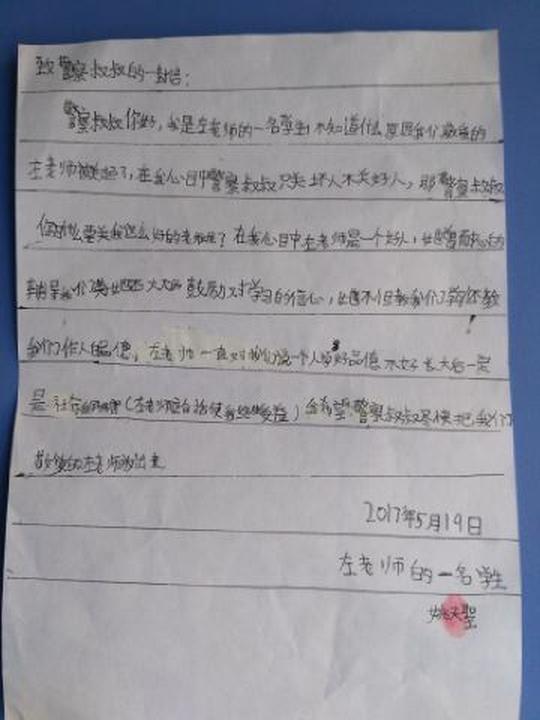 致警察叔叔的一封信：
警察叔叔你好，我是左老师的一名学生不知道什么原因我们敬爱的
左老师被关起了，在我心目中警察叔叔只关坏人不关好人，那警察叔叔
你为什么要关我这么好的老师呢？在我心目中左老师是一个好人，她曾
辅导我们 鼓励 对学习的信心，她不但教我们学习还教
我们作人品德，左老师一直对我们说一个人的品德不好长大后一定
是社会的（左老师这句话使我终生受益）希望警察叔叔尽快把我们
敬爱的左老师放出来
2017年5月19日
左老师的一名学生
姚天圣